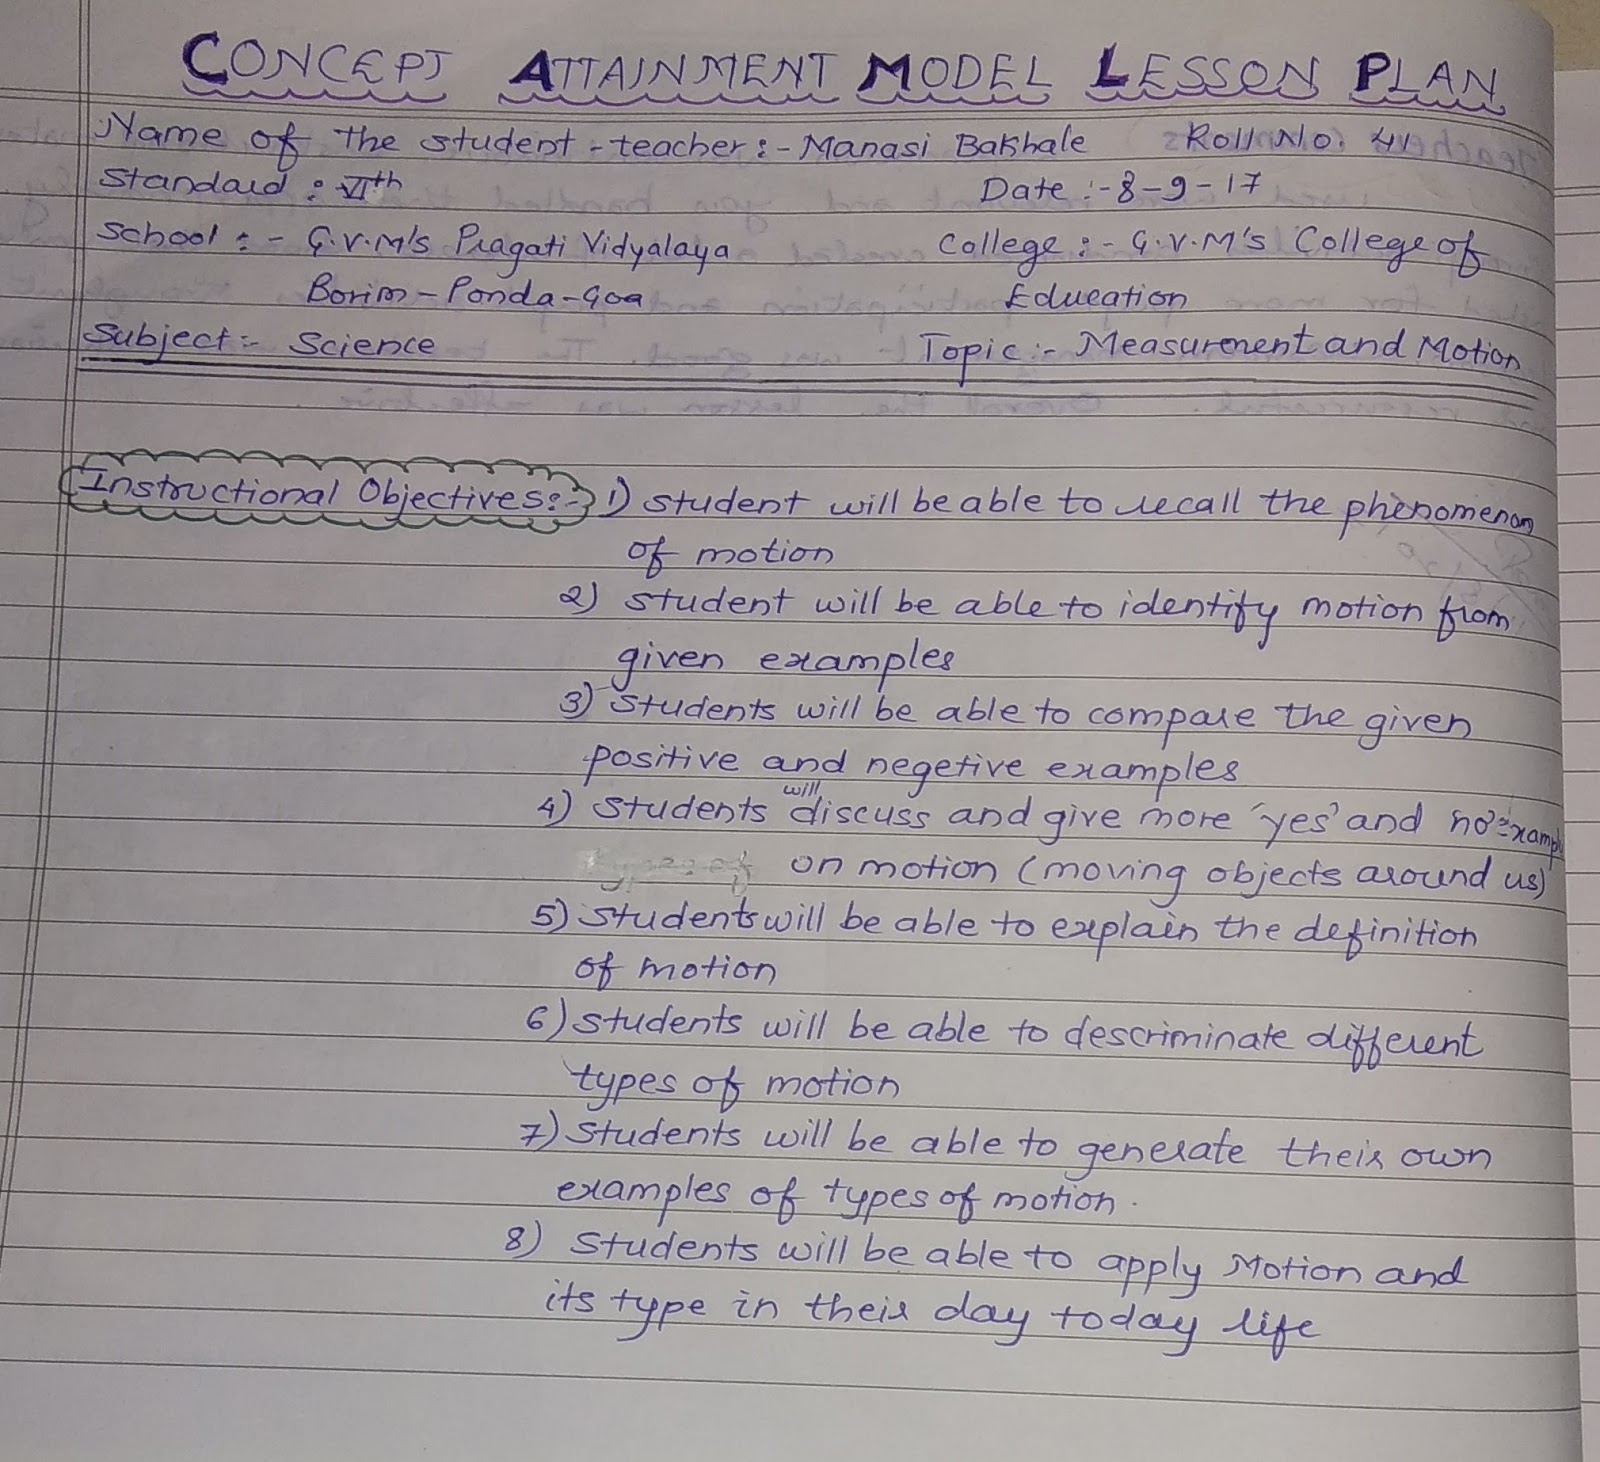 CONCEPT ATTAINMENT MODEL LESSON PLAN
Name of the student-teacher:- Manasi Bakhale Roll No. 41
Standard: VIth Date :- 8-9-17
School:- G.V.M's Pragati Vidyalaya College:- G.V.M's College of
Borim-Ponda-Goa Education
Subject:- Science Topic:- Measurement and Motion
Instructional Objectives:- 1) student will be able to recall the phenomenon
of motion
2) student will be able to identify motion from
given examples
3) Students will be able to compare the given
positive and negetive examples
4) Students will discuss and give more 'yes' and no
on motion (moving objects around us)
5) Students will be able to explain the definition
of motion
6) Students will be able to descriminate different
types of motion
7) Students will be able to generate their own
examples of types of motion.
8) Students will be able to apply Motion and
its type in their day today life